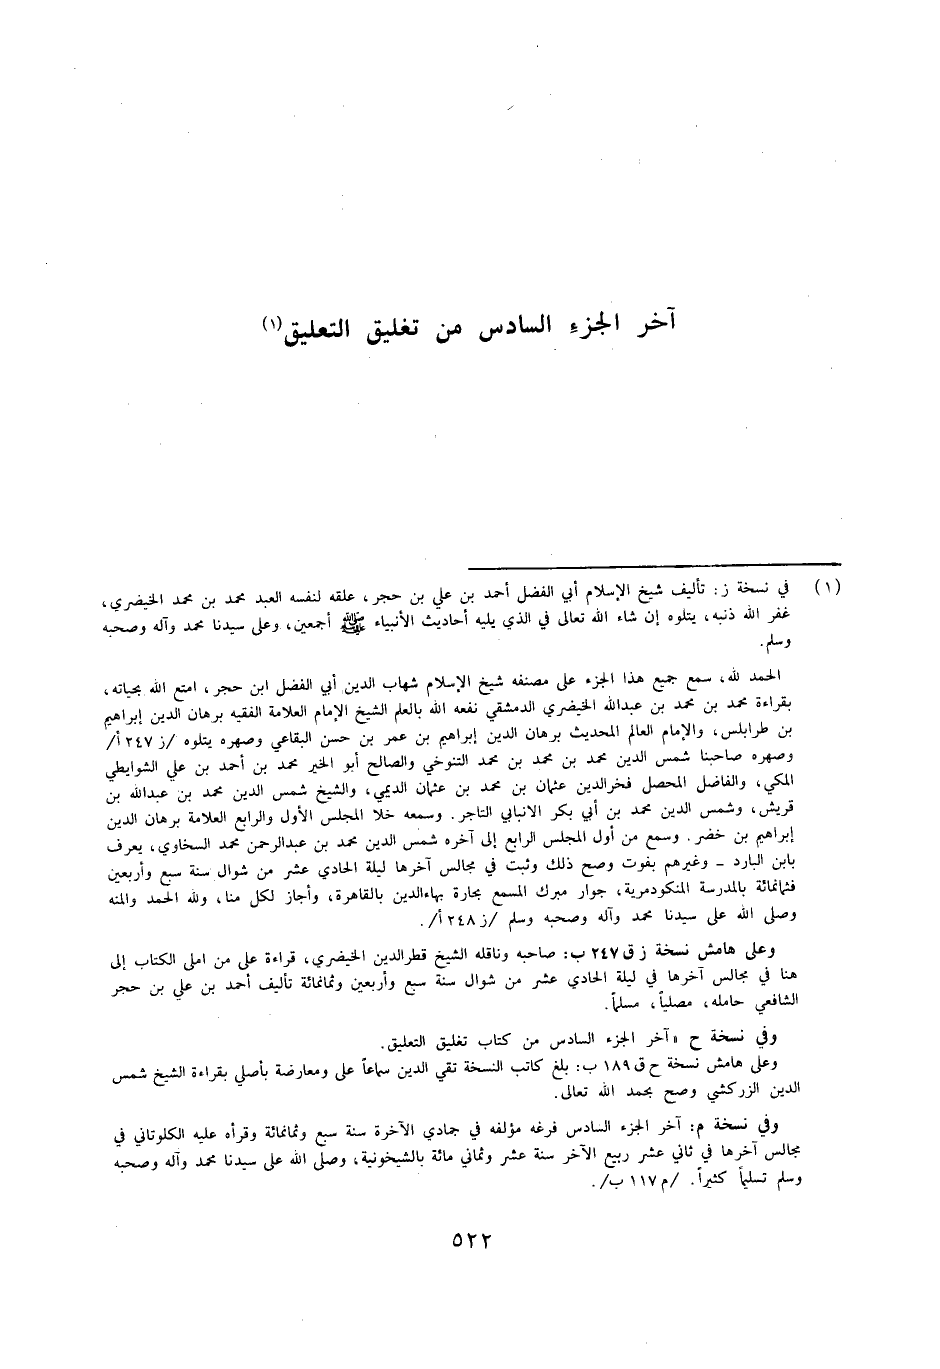 آخر الجزء السادس من تغليق التعليق(١)
(١) في نسخة ز: تأليف شيخ الإسلام أبي الفضل أحمد بن علي بن حجر، علقه لنفسه العبد محمد بن محمد الخيضري،
غفر الله ذنبه، يتلوه إن شاء الله تعالى في الذي يليه أحاديث الأنبياء ﷺ أجمعين، وعلى سيدنا محمد وآله وصحبه
وسلم.
الحمد لله، سمع جميع هذا الجزء على مصنفه شيخ الإسلام شهاب الدين أبي الفضل ابن حجر، امتع الله بحياته،
بقراءة محمد بن محمد بن عبدالله الخيضري الدمشقي نفعه الله بالعلم الشيخ الإمام العلامة الفقيه برهان الدين إبراهيم
بن طرابلس، والإمام العالم المحدث برهان الدين إبراهيم بن عمر بن حسن البقاعي وصهره يتلوه /ز ٢٤٧ أ/
وصهره صاحبنا شمس الدين محمد بن محمد بن محمد التنوخي والصالح أبو الخير محمد بن أحمد بن علي الشوايطي
المكي، والفاضل المحصل فخرالدين عثمان بن محمد بن عثمان الديمي، والشيخ شمس الدين محمد بن عبدالله بن
قريش، وشمس الدين محمد بن أبي بكر الانبابي التاجر. وسمعه خلا المجلس الأول والرابع العلامة برهان الدين
إبراهيم بن خضر. وسمع من أول المجلس الرابع إلى آخره شمس الدين محمد بن عبدالرحمن محمد السخاوي، يعرف
بابن البارد - وغيرهم بفوت وصح ذلك وثبت في مجالس آخرها ليلة الحادي عشر من شوال سنة سبع وأربعين
فثمانمائة بالمدرسة المنكودمرية، جوار مبرك المسمع بحارة بهاءالدين بالقاهرة، وأجاز لكل منا، ولله الحمد والمنه
وصلى الله على سيدنا محمد وآله وصحبه وسلم /ز ٢٤٨ أ/.
وعلى هامش نسخة ز ق ٢٤٧ ب: صاحبه وناقله الشيخ قطرالدين الخيضري، قراءة على من املى الكتاب إلى
هنا في مجالس آخرها في ليلة الحادي عشر من شوال سنة سبع وأربعين وثمانمائة تأليف أحمد بن علي بن حجر
الشافعي حامله، مصلياً، مسلماً.
وفي نسخة ح «آخر الجزء السادس من كتاب تغليق التعليق.
وعلى هامش نسخة ح ق ١٨٩ ب: بلغ كاتب النسخة تقي الدين سماعاً على ومعارضة بأصلي بقراءة الشيخ شمس
الدين الزركشي وصح بحمد الله تعالى.
وفي نسخة م: آخر الجزء السادس فرغه مؤلفه في جمادي الآخرة سنة سبع وثمانمائة وقرأه عليه الكلوتاني في
مجالس آخرها في ثاني عشر ربيع الآخر سنة عشر وثماني مائة بالشيخونية، وصلى الله على سيدنا محمد وآله وصحبه
وسلم تسليماً كثيراً. /م ١١٧ ب/.
٥٢٢